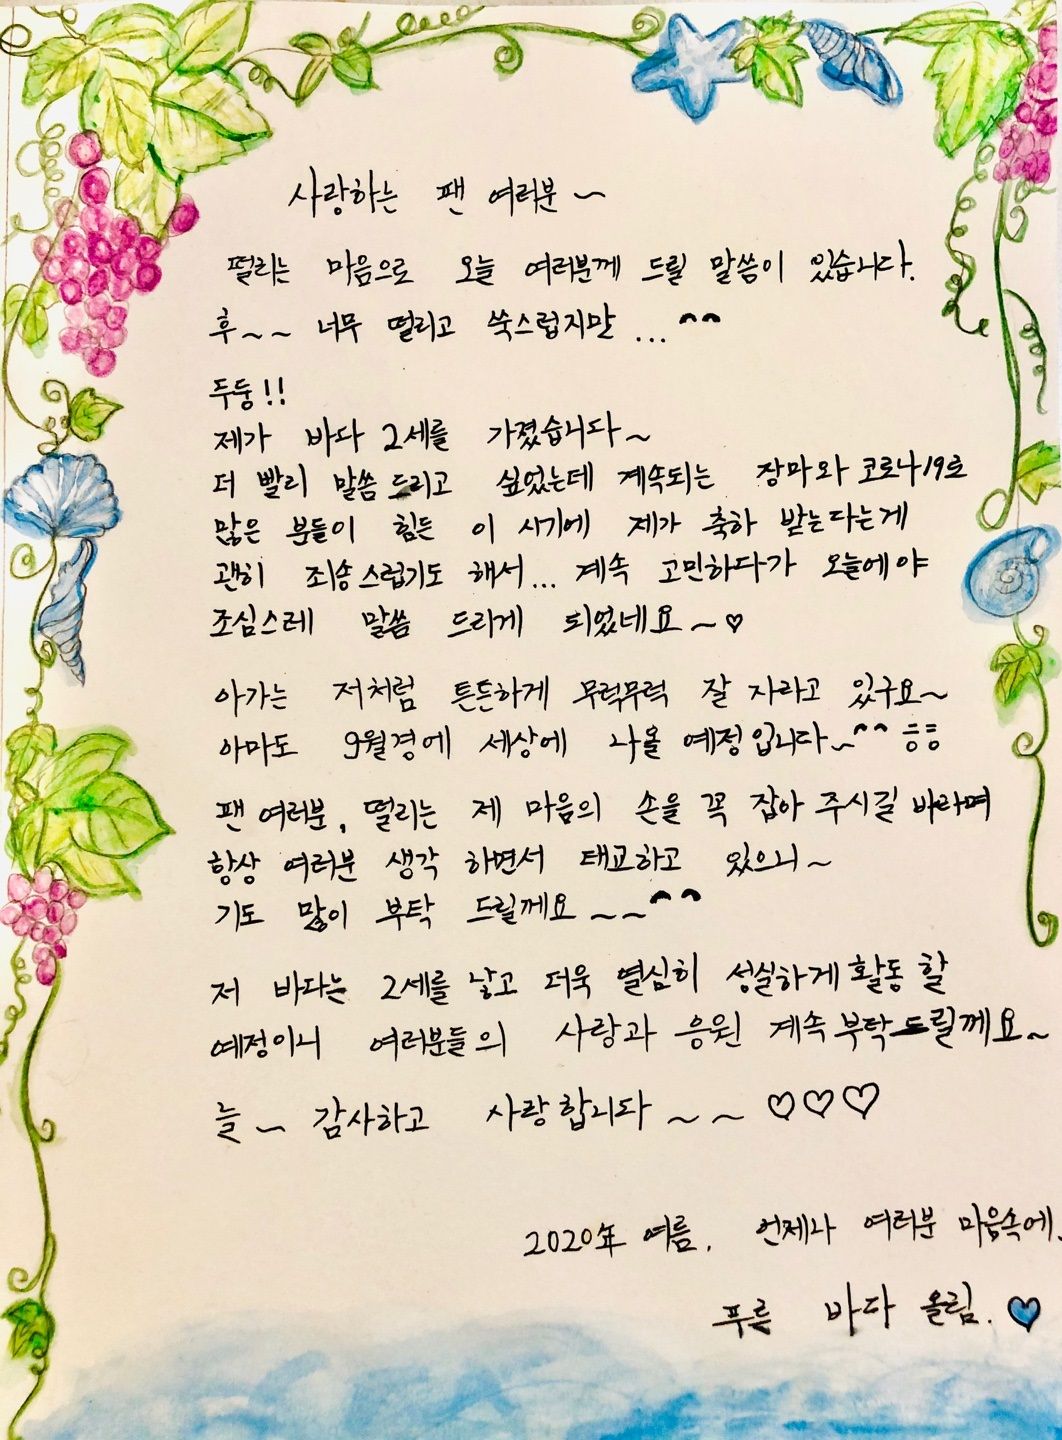 사랑하는 팬 여러분~
떨리는 마음으로 오늘 여러분께 드릴 말씀이 있습니다.
후~~ 너무 떨리고 쑥스럽지만 ...^^
두둥!!
제가 바다 2세를 가졌습니다~
더 빨리 말씀드리고 싶었는데 계속되는 장마와 코로나19로
많은 분들이 힘든 이 시기에 제가 축하 받는다는게
괜히 죄송스럽기도 해서... 계속 고민하다가 오늘에야
조심스레 말씀 드리게 되었네요~♡
아가는 저처럼 튼튼하게 무럭무럭 잘 자라고 있구요~
아마도 9월경에 세상에 나올 예정입니다~^^ ㅎㅎ
팬 여러분, 떨리는 제 마음의 손을 꼭 잡아 주시길 바라며
항상 여러분 생각 하면서 태교하고 있으니~
기도 많이 부탁 드릴께요~~^^
저 바다는 2세를 낳고 더욱 열심히 성실하게 활동 할
예정이니 여러분들의 사랑과 응원 계속 부탁드릴께요~
늘~ 감사하고 사랑합니다~~♡♡♡
2020年 여름. 언제나 여러분 마음속에.
푸른 바다 올림. ♡